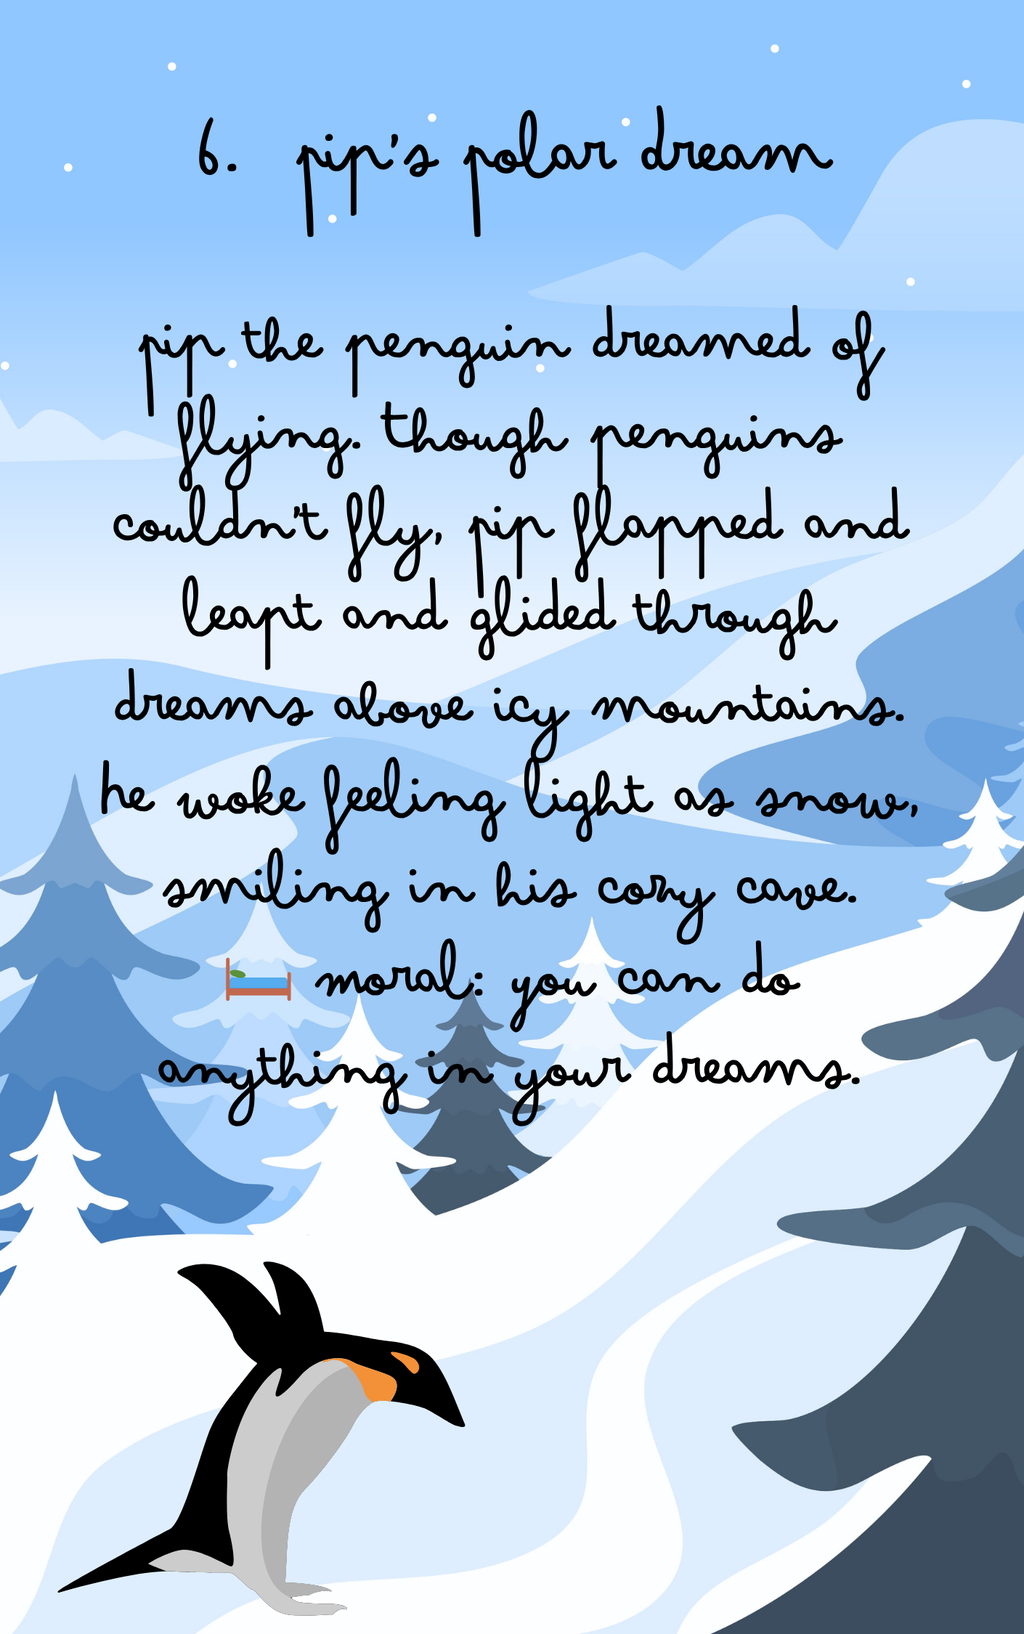 6. pip's polar dream
pip the penguin dreamed of
flying. though penguins
couldn't fly, pip flapped and
leapt and glided through
dreams above icy mountains.
he woke feeling light as snow,
smiling in his cozy cave.
🛏️ moral: you can do
anything in your dreams.